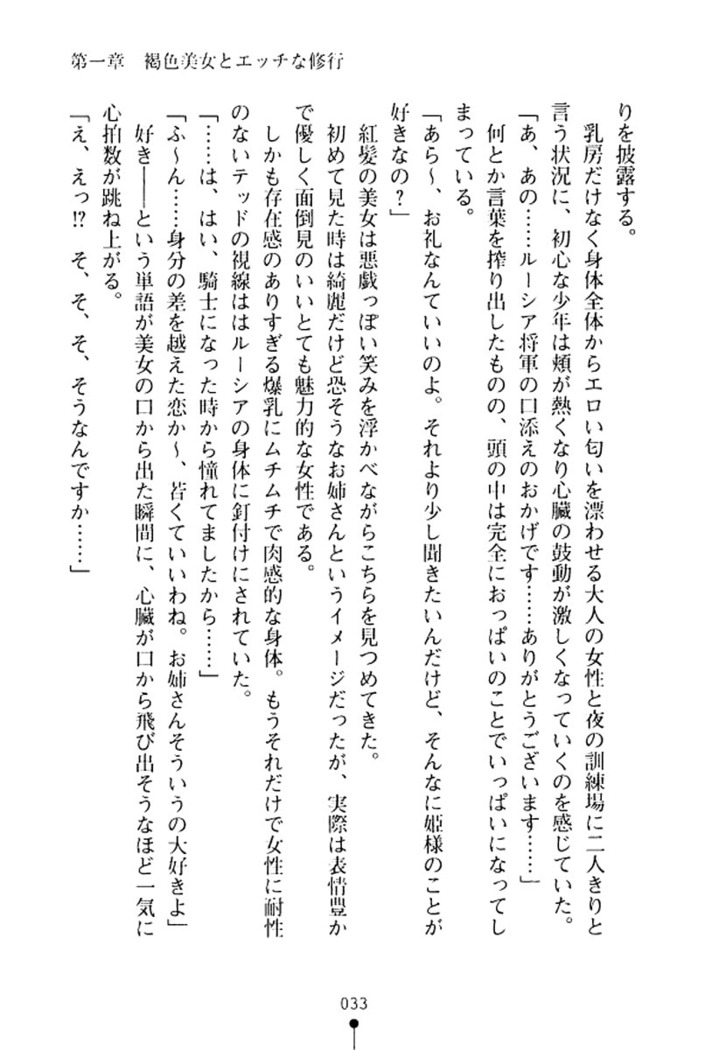 第一章　褐色美女とエッチな修行
りを披露する。
　乳房だけなく身体全体からエロい匂いを漂わせる大人の女性と夜の訓練場に二人きりと
言う状況に、初心な少年は頬が熱くなり心臓の鼓動が激しくなっていくのを感じていた。
「あ、あの……ルーシア将軍の口添えのおかげです……ありがとうございます……」
　何とか言葉を搾り出したものの、頭の中は完全におっぱいのことでいっぱいになってし
まっている。
「あら～、お礼なんていいのよ。それより少し聞きたいんだけど、そんなに姫様のことが
好きなの？」
　紅髪の美女は悪戯っぽい笑みを浮かべながらこちらを見つめてきた。
　初めて見た時は綺麗だけど恐そうなお姉さんというイメージだったが、実際は表情豊か
で優しく面倒見のいいとても魅力的な女性である。
　しかも存在感のありすぎる爆乳にムチムチで肉感的な身体。もうそれだけで女性に耐性
のないテッドの視線ははルーシアの身体に釘付けにされていた。
「……は、はい、騎士になった時から憧れてましたから……」
「ふ～ん……身分の差を越えた恋か～、若くていいわね。お姉さんそういうの大好きよ」
　好き――という単語が美女の口から出た瞬間に、心臓が口から飛び出そうなほど一気に
心拍数が跳ね上がる。
「え、えっ!?　そ、そ、そ、そうなんですか……」
033